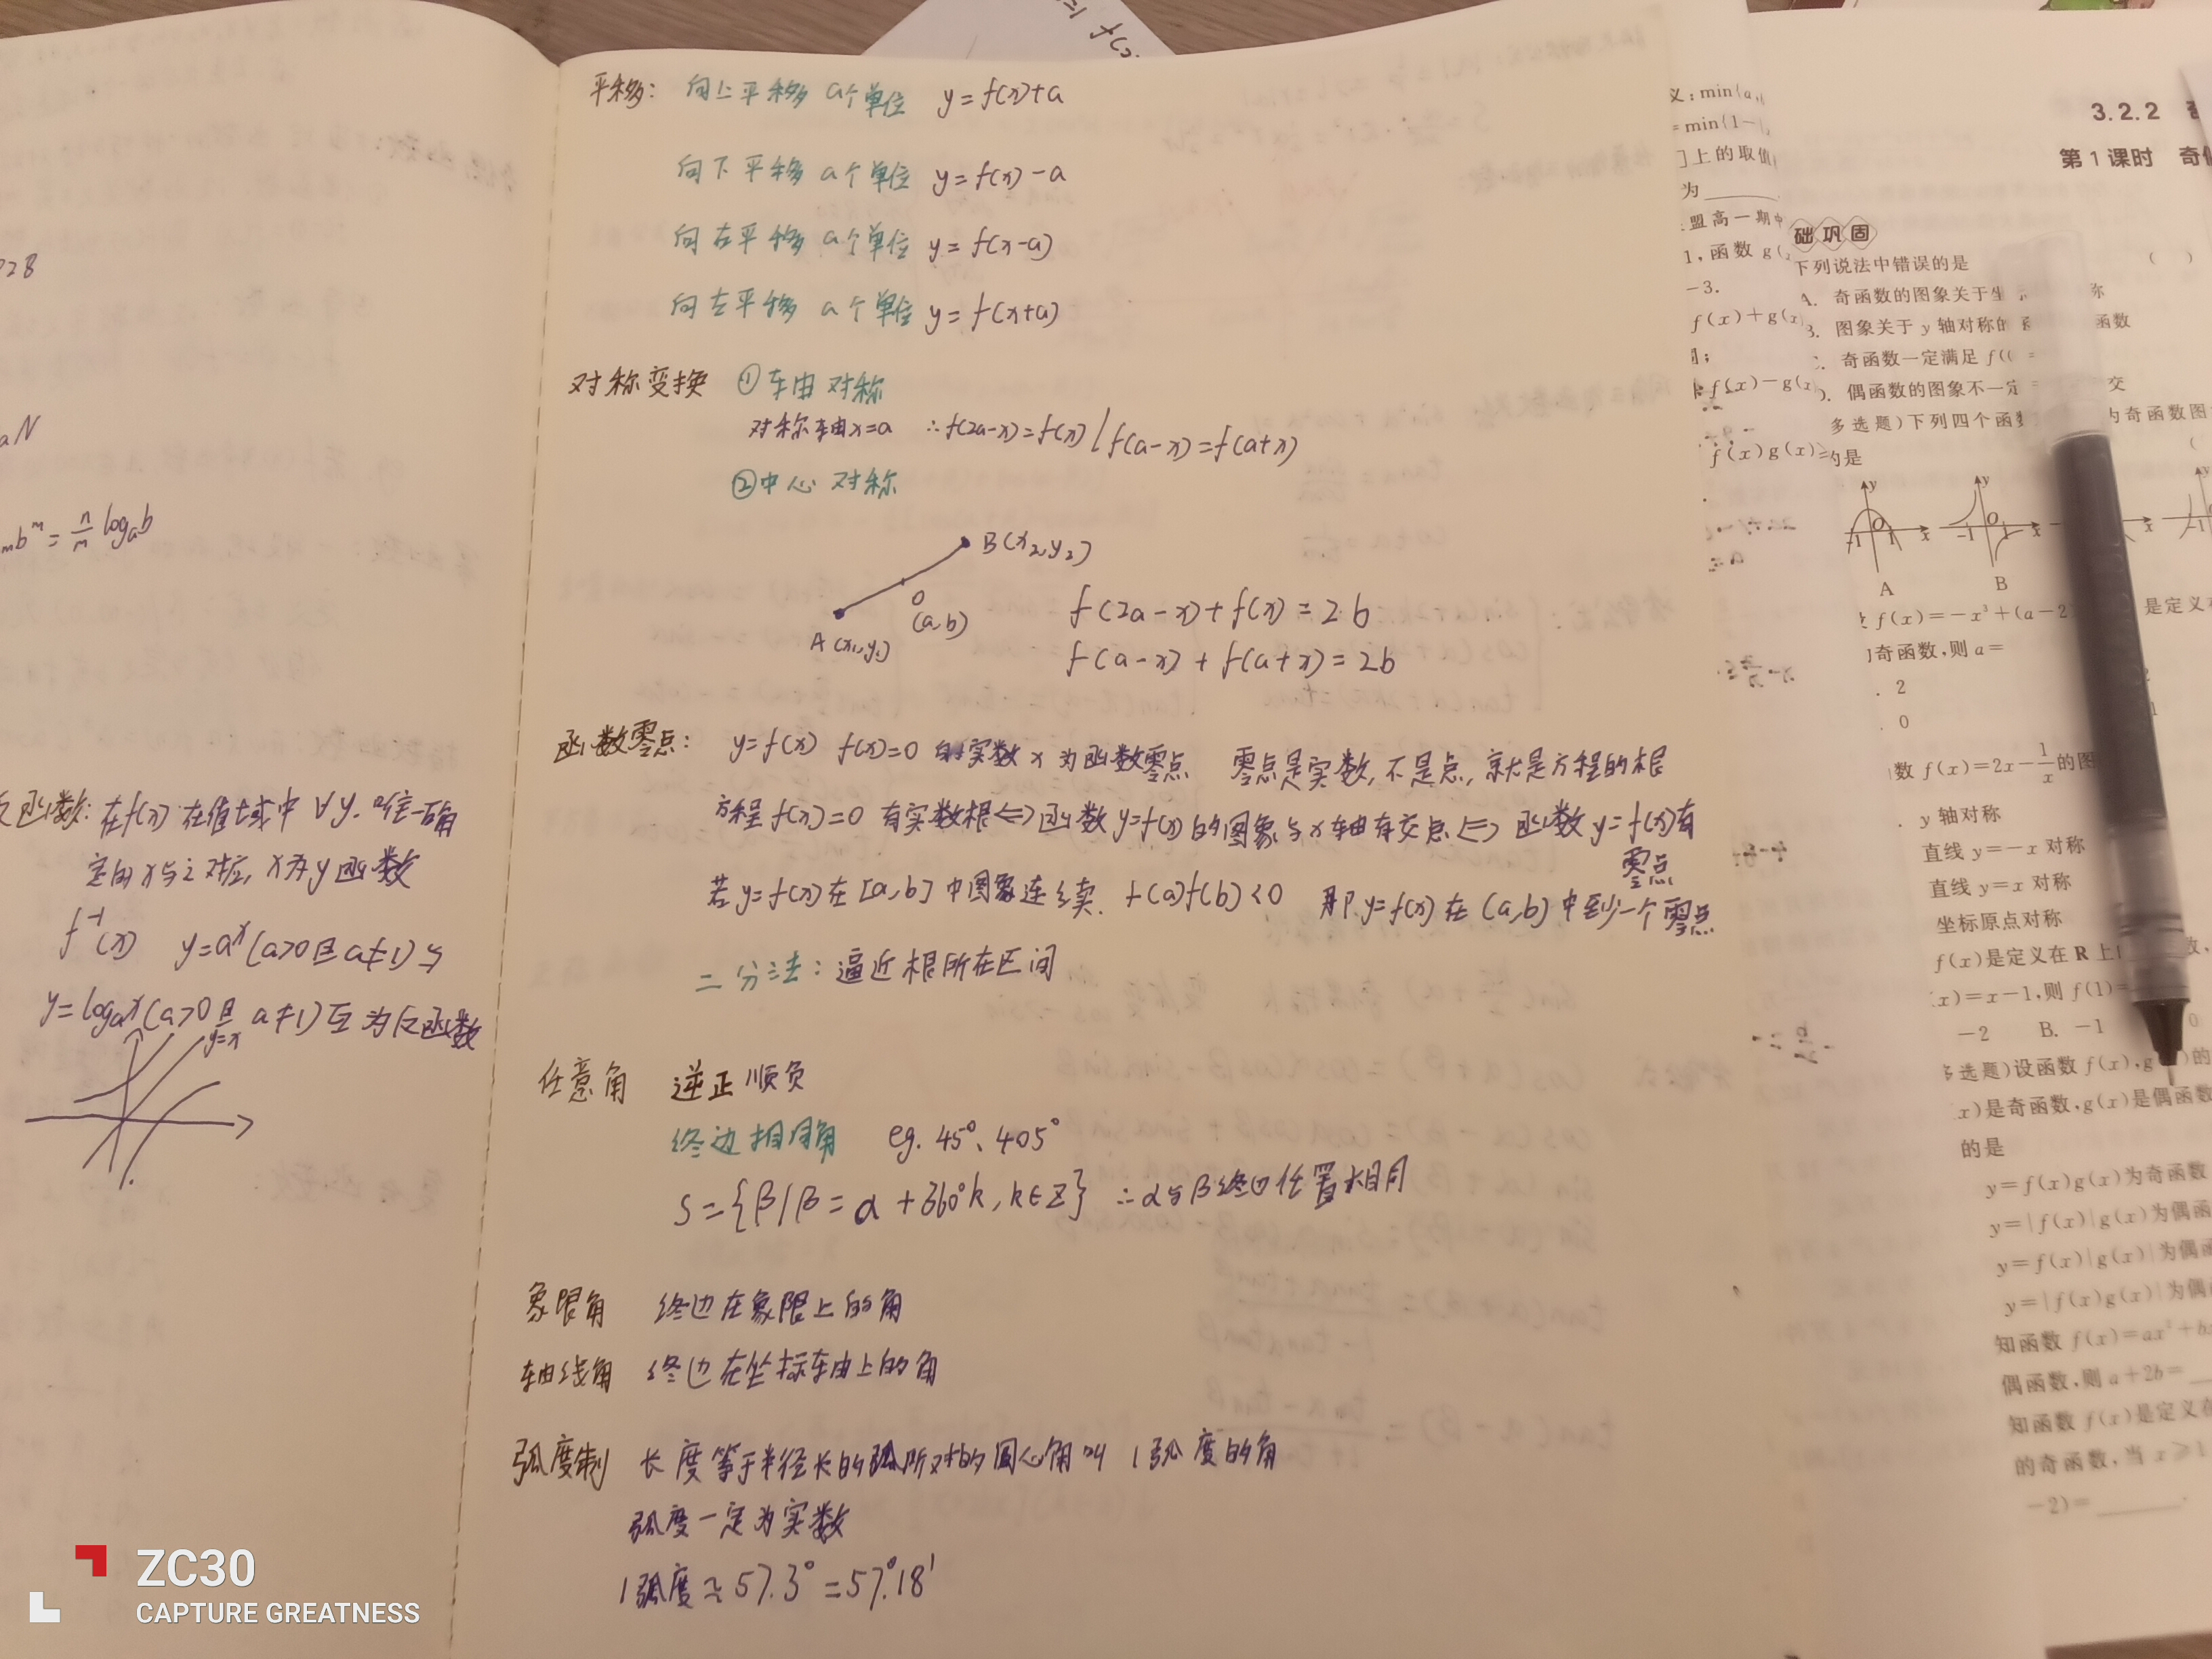 P28
aN
mbᵐ = n/m logₐb
反函数: 在f(x)在值域中 ∀y. 唯一确
定的x与之对应, x为y函数
f⁻¹(x) y=aˣ(a>0且a≠1)与
y=logₐx(a>0且 a≠1)互为反函数
y=x
平移: 向上平移 a个单位 y=f(x)+a
向下平移 a个单位 y=f(x)-a
向右平移 a个单位 y=f(x-a)
向左平移 a个单位 y=f(x+a)
对称变换 ①轴对称
对称轴x=a ∴f(2a-x)=f(x) / f(a-x)=f(a+x)
②中心对称
B(x₂,y₂)
O
(a,b)
A(x₁,y₁)
f(2a-x)+f(x)=2b
f(a-x)+f(a+x)=2b
函数零点: y=f(x) f(x)=0 的实数x为函数零点 零点是实数,不是点,就是方程的根
方程f(x)=0 有实数根⇔函数y=f(x)的图象与x轴有交点⇔函数y=f(x)有
零点
若y=f(x)在[a,b]中图象连续. f(a)f(b)<0 那y=f(x)在(a,b)中至少一个零点
二分法: 逼近根所在区间
任意角 逆正顺负
终边相同角 eg. 45°、405°
S={β|β=α+360°k, k∈Z} ∴α与β终边位置相同
象限角 终边在象限上的角
轴线角 终边在坐标轴上的角
弧度制 长度等于半径长的弧所对的圆心角叫1弧度的角
弧度一定为实数
1弧度≈57.3°=57°18′
义:min{a,
=min{1-
]上的取值
为
盟高一期中
1,函数 g(
-3.
f(x)+g(x)
f(x)-g(x)
f(x)g(x)=
3.2.2 奇
第1课时 奇偶
础巩固
下列说法中错误的是 ( )
A. 奇函数的图象关于坐 称
B. 图象关于 y 轴对称的 函数
奇函数一定满足 f(
偶函数的图象不一定 交
多选题)下列四个函数 为奇函数图
的是
y
O
-1 1 x
A
y
O
-1 1 x
B
f(x)=-x³+(a-2 是定义在
奇函数,则 a=
2
0
数 f(x)=2x-1/x的图
y 轴对称
直线 y=-x 对称
直线 y=x 对称
坐标原点对称
f(x)是定义在 R 上 数,
x)=x-1,则 f(1)=
-2 B. -1 0
多选题)设函数 f(x),g( )的
x)是奇函数,g(x)是偶函数
的是
y=f(x)g(x)为奇函数
y=|f(x)|g(x)为偶函
y=f(x)|g(x)|为偶函
y=|f(x)g(x)|为偶
知函数 f(x)=ax²+bx
偶函数,则 a+2b=
知函数 f(x)是定义在
的奇函数,当 x≥1
-2)=
ZC30
CAPTURE GREATNESS